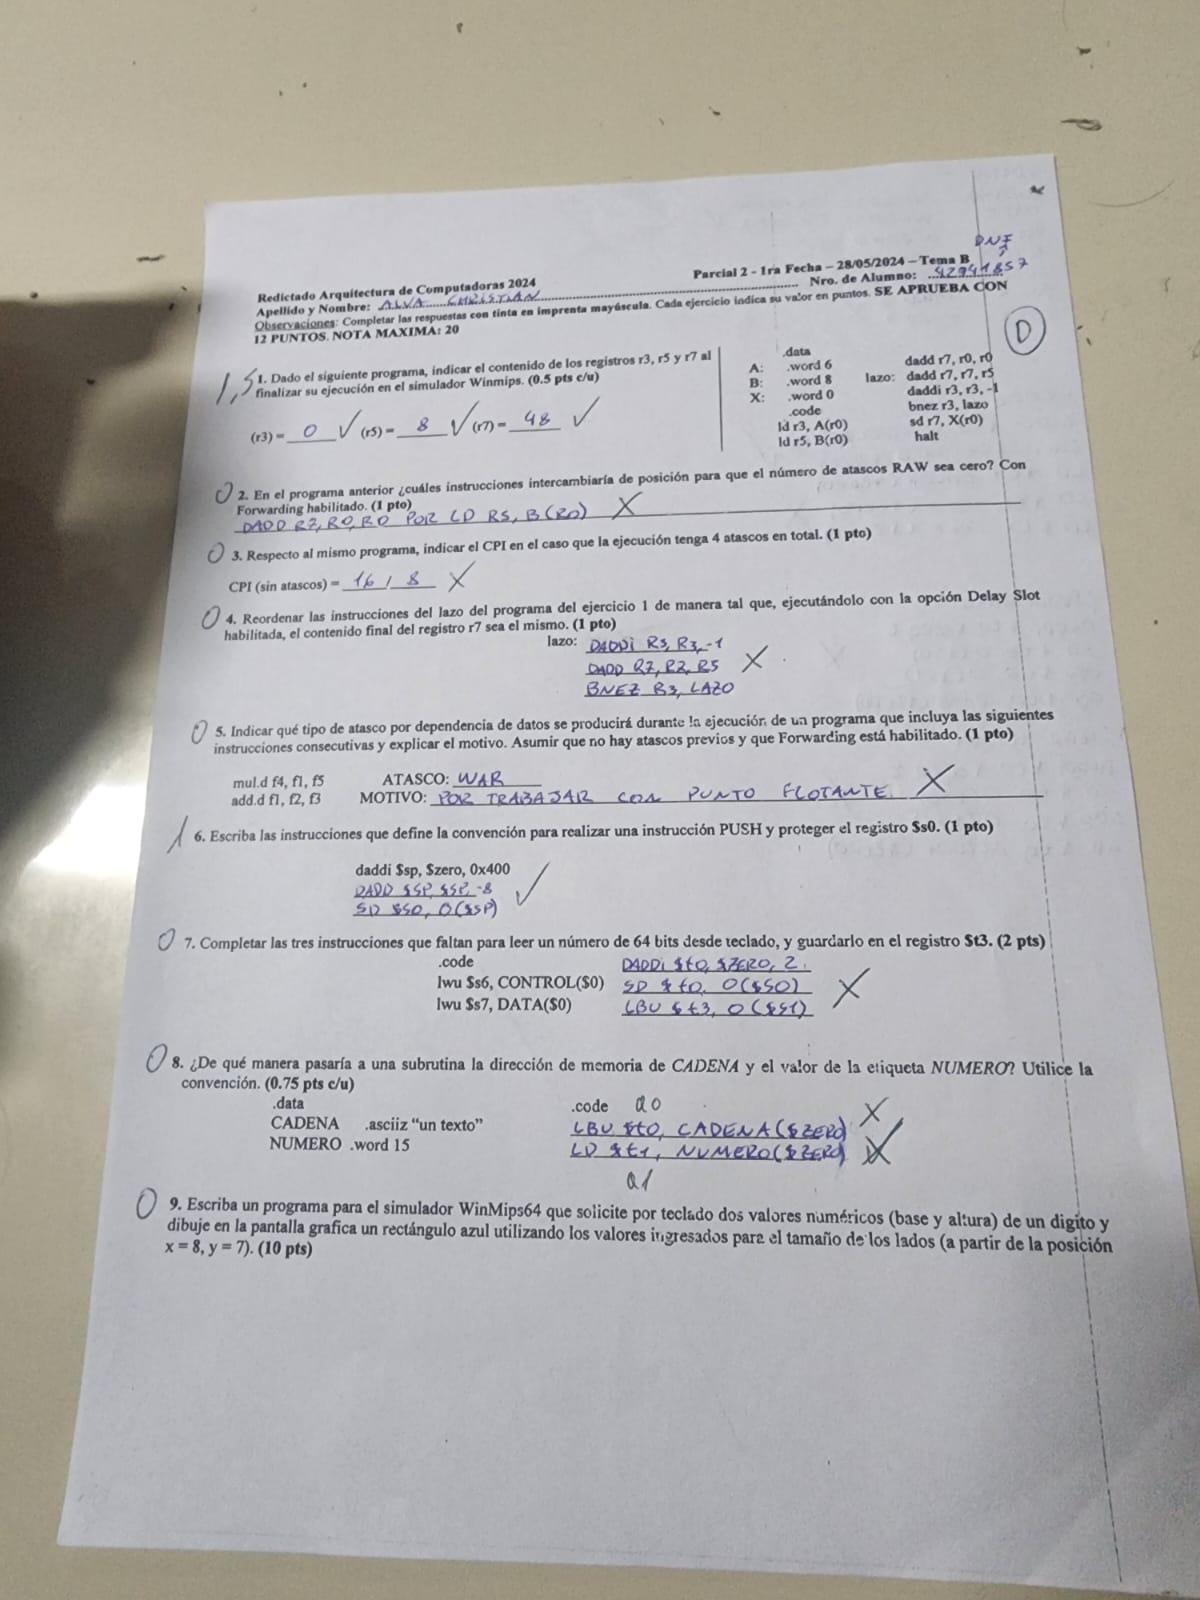 DNI
Redictado Arquitectura de Computadoras 2024 Parcial 2 - 1ra Fecha – 28/05/2024 – Tema B
Apellido y Nombre: ALVA CHRISTIAN Nro. de Alumno: 42941857
Observaciones: Completar las respuestas con tinta en imprenta mayúscula. Cada ejercicio indica su valor en puntos. SE APRUEBA CON
12 PUNTOS. NOTA MAXIMA: 20
D
1,5
1. Dado el siguiente programa, indicar el contenido de los registros r3, r5 y r7 al
finalizar su ejecución en el simulador Winmips. (0.5 pts c/u)
(r3) = 0 ✓ (r5) = 8 ✓ (r7) = 48 ✓
.data
A: .word 6
B: .word 8
X: .word 0
.code
ld r3, A(r0)
ld r5, B(r0)
dadd r7, r0, r0
lazo: dadd r7, r7, r5
daddi r3, r3, -1
bnez r3, lazo
sd r7, X(r0)
halt
0 2. En el programa anterior ¿cuáles instrucciones intercambiaría de posición para que el número de atascos RAW sea cero? Con
Forwarding habilitado. (1 pto)
DADD R7, R0, R0 POR LD R5, B(R0) X
0 3. Respecto al mismo programa, indicar el CPI en el caso que la ejecución tenga 4 atascos en total. (1 pto)
CPI (sin atascos) = 16 / 8 X
0 4. Reordenar las instrucciones del lazo del programa del ejercicio 1 de manera tal que, ejecutándolo con la opción Delay Slot
habilitada, el contenido final del registro r7 sea el mismo. (1 pto)
lazo: DADDi R3, R3, -1
DADD R7, R7, R5 X
BNEZ R3, LAZO
0 5. Indicar qué tipo de atasco por dependencia de datos se producirá durante la ejecución de un programa que incluya las siguientes
instrucciones consecutivas y explicar el motivo. Asumir que no hay atascos previos y que Forwarding está habilitado. (1 pto)
mul.d f4, f1, f5 ATASCO: WAR
add.d f1, f2, f3 MOTIVO: POR TRABAJAR CON PUNTO FLOTANTE. X
1 6. Escriba las instrucciones que define la convención para realizar una instrucción PUSH y proteger el registro $s0. (1 pto)
daddi $sp, $zero, 0x400
DADD $SP, $SP, -8 ✓
SD $S0, 0($SP)
0 7. Completar las tres instrucciones que faltan para leer un número de 64 bits desde teclado, y guardarlo en el registro $t3. (2 pts)
.code DADDi $t0, $ZERO, 2
lwu $s6, CONTROL($0) SD $t0, 0($S0) X
lwu $s7, DATA($0) LBU $t3, 0($S1)
0 8. ¿De qué manera pasaría a una subrutina la dirección de memoria de CADENA y el valor de la etiqueta NUMERO? Utilice la
convención. (0.75 pts c/u)
.data .code a0
CADENA .asciiz “un texto” LBU $t0, CADENA($ZERO) X
NUMERO .word 15 LD $t1, NUMERO($ZERO) X
a1
0 9. Escriba un programa para el simulador WinMips64 que solicite por teclado dos valores numéricos (base y altura) de un digito y
dibuje en la pantalla grafica un rectángulo azul utilizando los valores ingresados para el tamaño de los lados (a partir de la posición
x = 8, y = 7). (10 pts)